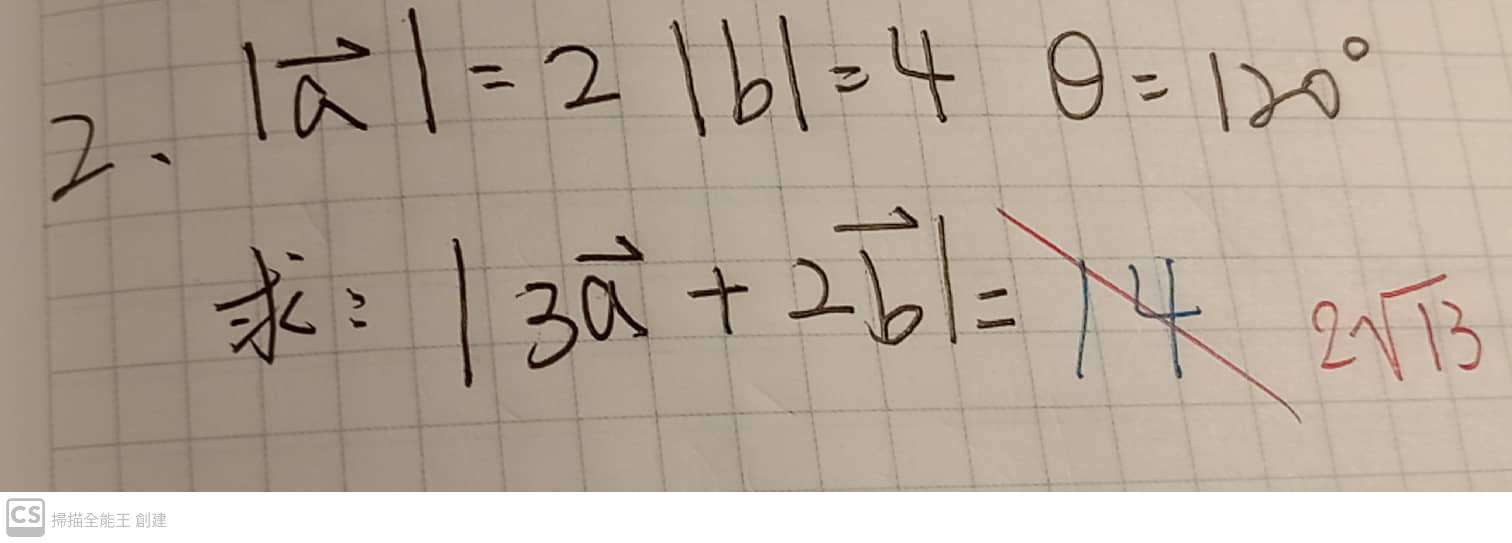 2. |a⃗| = 2 |b| = 4 θ = 120°
求: |3a⃗ + 2b⃗| = 14 2√13
CS 掃描全能王 創建